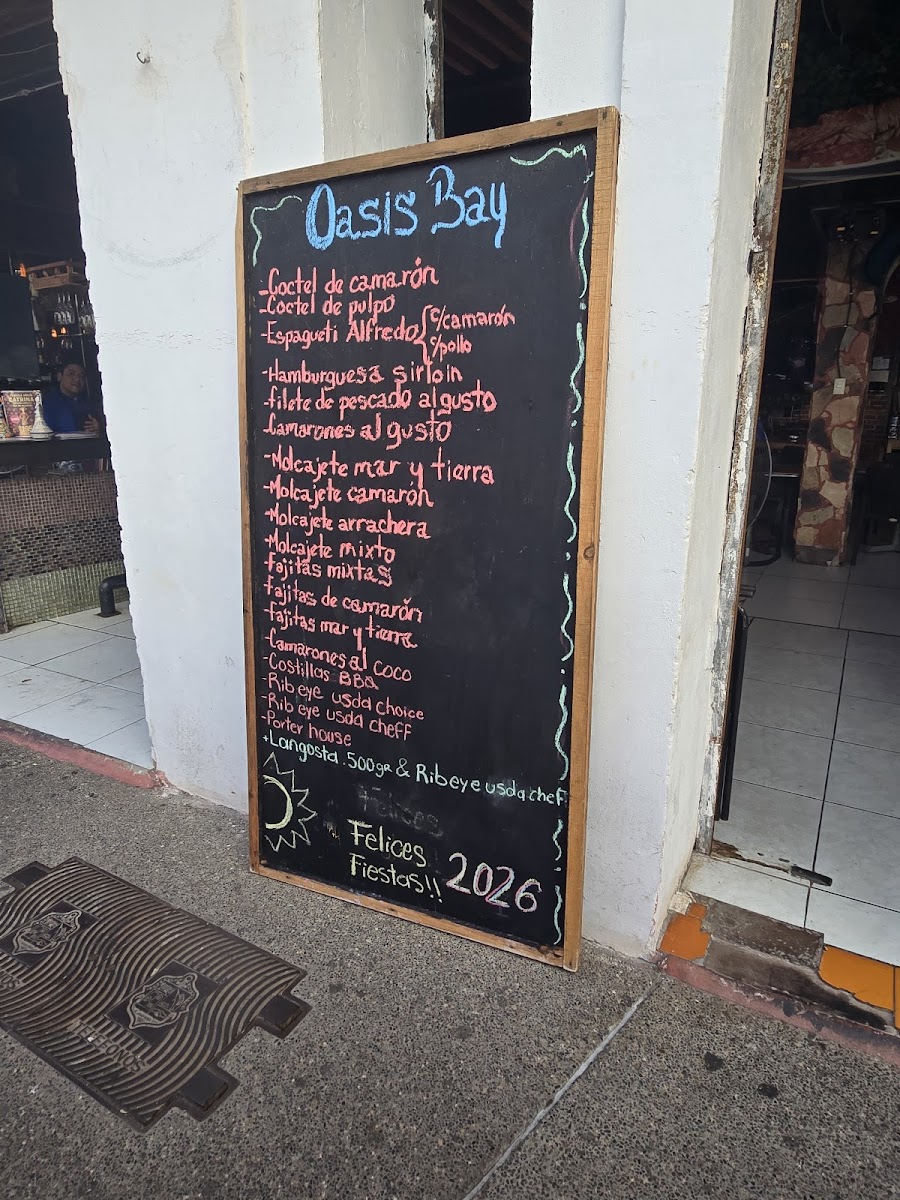 Oasis Bay
-Coctel de camarón
-Coctel de pulpo
-Espagueti Alfredo { c/camarón
c/pollo
-Hamburguesa sirloin
-filete de pescado al gusto
-Camarones al gusto
-Molcajete mar y tierra
-Molcajete camarón
-Molcajete arrachera
-Molcajete mixto
-Fajitas mixtas
-Fajitas de camarón
-Fajitas mar y tierra
-Camarones al coco
-Costillas BBQ
-Rib eye usda choice
-Rib eye usda cheff
-Porter house
+Langosta .500gr & Ribeye usda chef
Felices
Felices
Fiestas!! 2026
TELEFONOS